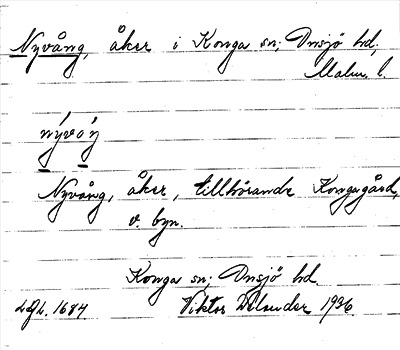 Nyvång, åker i Konga sn; Onsjö hd,
Malm. l.
nývóŋ
Nyvång, åker, tillhörande Kongagård,
v. byn.
Konga sn; Onsjö hd.
1684 Viktor 1936